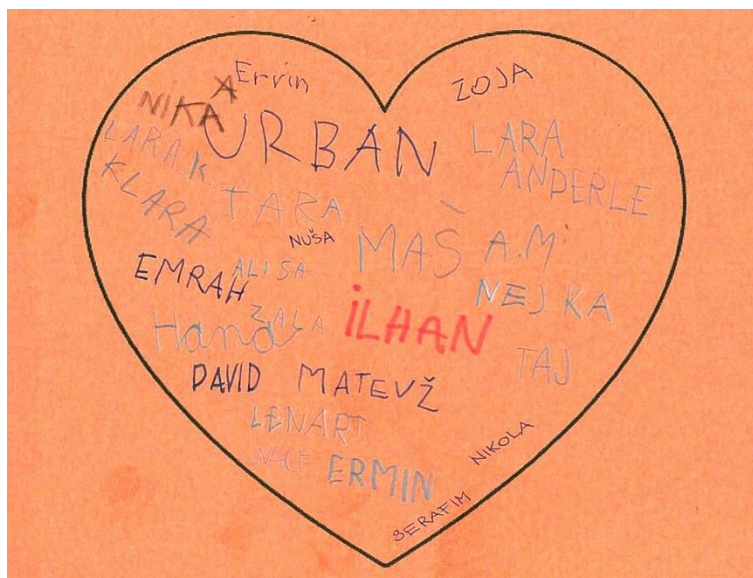 Ervin
ZOJA
NIKA
URBAN
LARA
ANDERLE
LARA K.
KLARA
TARA
NUŠA
MAŠA.M
EMRAH
ALISA
NEJKA
ZALA
Hana
İLHAN
TAJ
DAVID
MATEVŽ
LENART
NIKOLA
NACE
ERMIN
SERAFIM